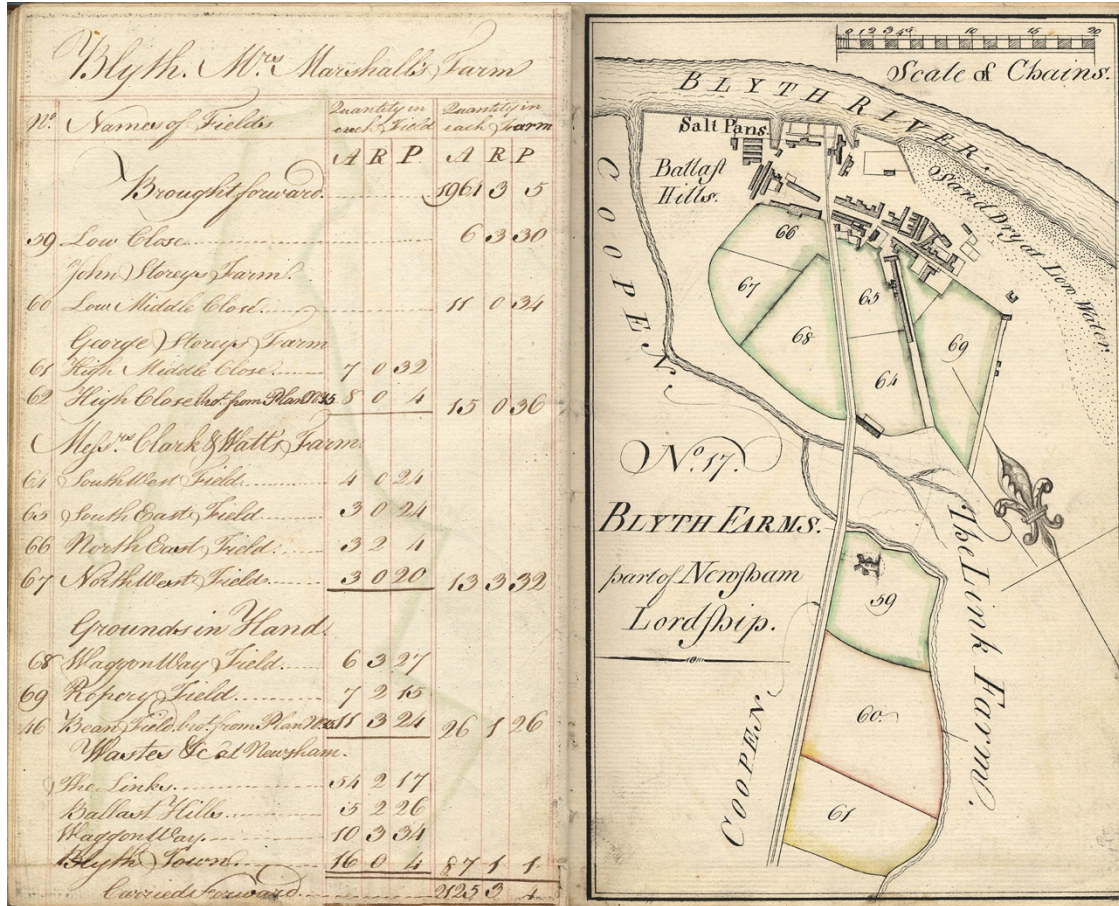 Blyth. Mrs Marshall's Farm
No. Names of Fields Quantity in each Field Quantity in each Farm
A R P. A R P
Brought forward. 1961 3 5
59 Low Close 6 3 30
John Storeys Farm.
60 Low Middle Close 11 0 34
George Storeys Farm
61 High Middle Close 7 0 32
62 High Close bro.t from Plan No 15 8 0 4 15 0 36
Messrs Clark & Watt's Farm
64 South West Field 4 0 24
65 South East Field 3 0 24
66 North East Field 3 2 4
67 North West Field 3 0 20 13 3 32
Grounds in Hand.
68 Waggon Way Field 6 3 27
69 Ropery Field 7 2 15
46 Bean Field, bro.t from Plan 11 3 24 26 1 26
Wastes &c at Newsham.
The Links 54 2 17
Ballast Hills 5 2 26
Waggon Way 10 3 34
Blyth Town 16 0 4 87 1 1
Carried forward 2125 3 4
0 1 2 3 4 5 10 15 20
Scale of Chains.
BLYTH RIVER.
Salt Pans.
Ballast
Hills.
Sand Dry at Low Water
COOPEN
66
67
65
68
69
64
No. 17.
BLYTH FARMS.
part of Newsham
Lordship.
The Link Farm.
59
60
61
COOPEN.